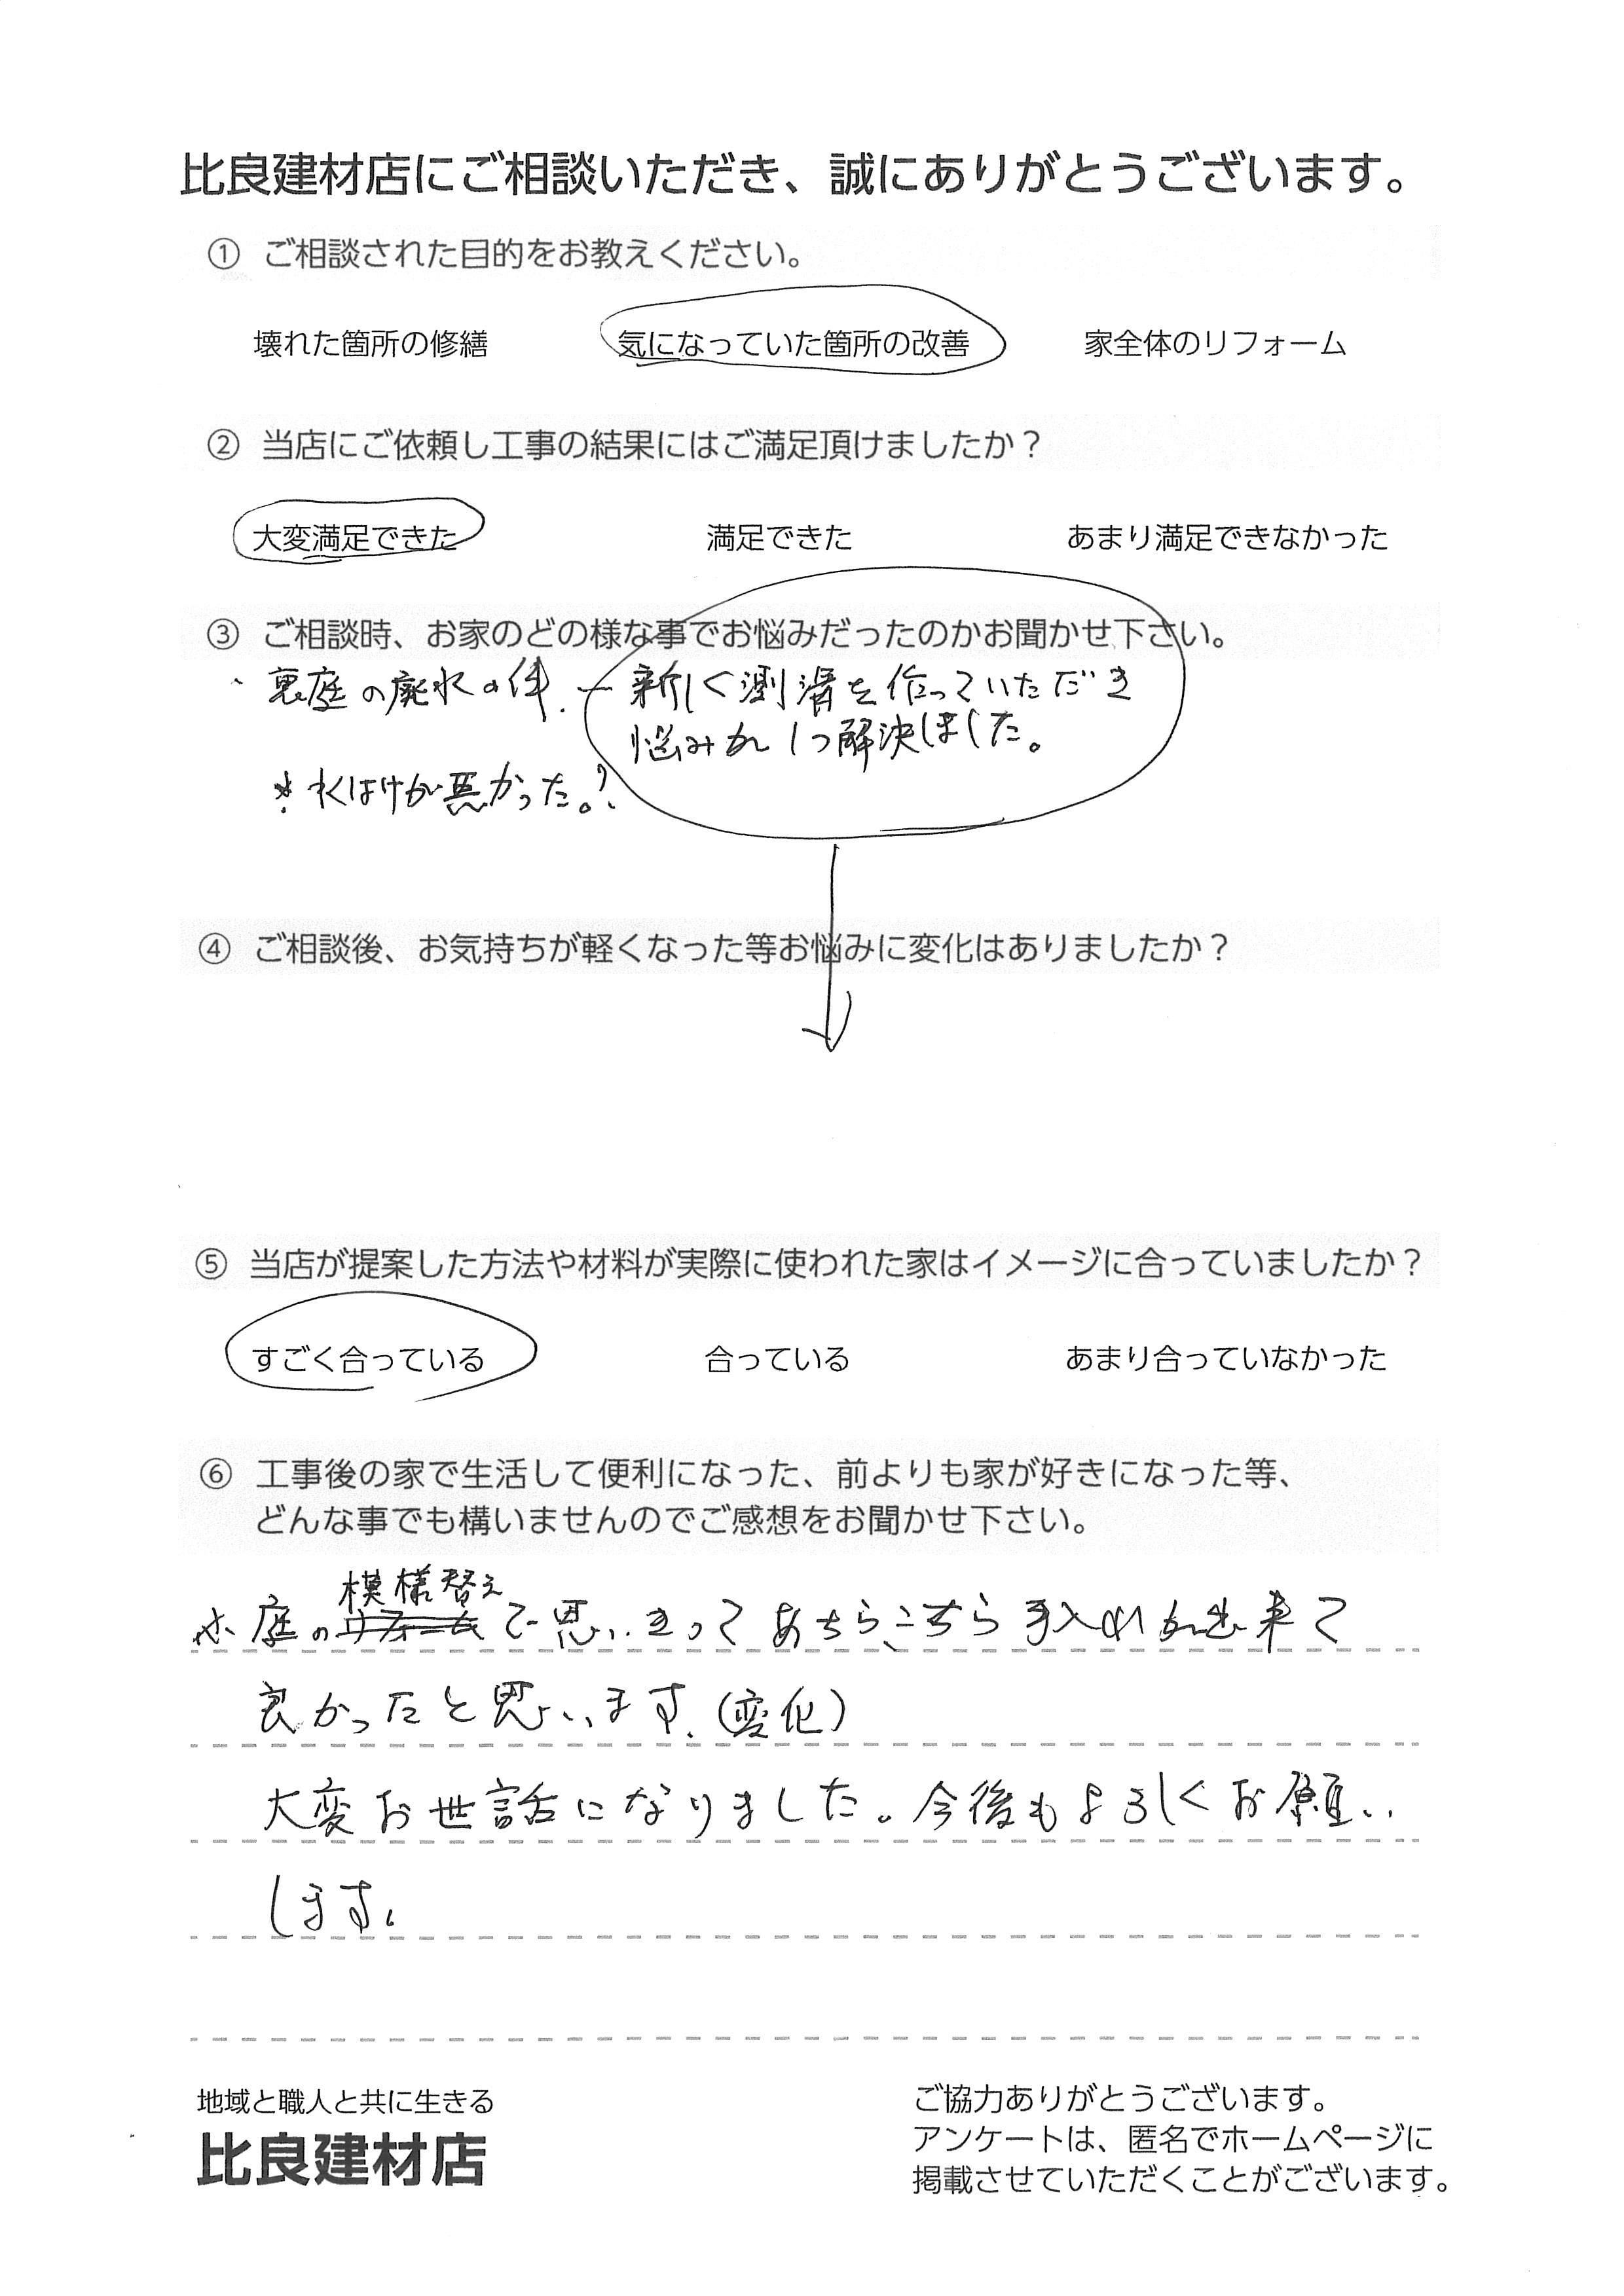 比良建材店にご相談いただき、誠にありがとうございます。
① ご相談された目的をお教えください。
壊れた箇所の修繕 気になっていた箇所の改善 家全体のリフォーム
② 当店にご依頼し工事の結果にはご満足頂けましたか？
大変満足できた 満足できた あまり満足できなかった
③ ご相談時、お家のどの様な事でお悩みだったのかお聞かせ下さい。
・裏庭の廃水の件. ー 新しく測溝を作っていただき
悩みが1つ解決しました。
* 水はけが悪かった。
④ ご相談後、お気持ちが軽くなった等お悩みに変化はありましたか？
⑤ 当店が提案した方法や材料が実際に使われた家はイメージに合っていましたか？
すごく合っている 合っている あまり合っていなかった
⑥ 工事後の家で生活して便利になった、前よりも家が好きになった等、
どんな事でも構いませんのでご感想をお聞かせ下さい。
模様替え
庭の で思いきって あちらこちら 手入れが出来て
良かったと思います.(変化)
大変お世話になりました。今後もよろしくお願い
します。
地域と職人と共に生きる
比良建材店
ご協力ありがとうございます。
アンケートは、匿名でホームページに
掲載させていただくことがございます。